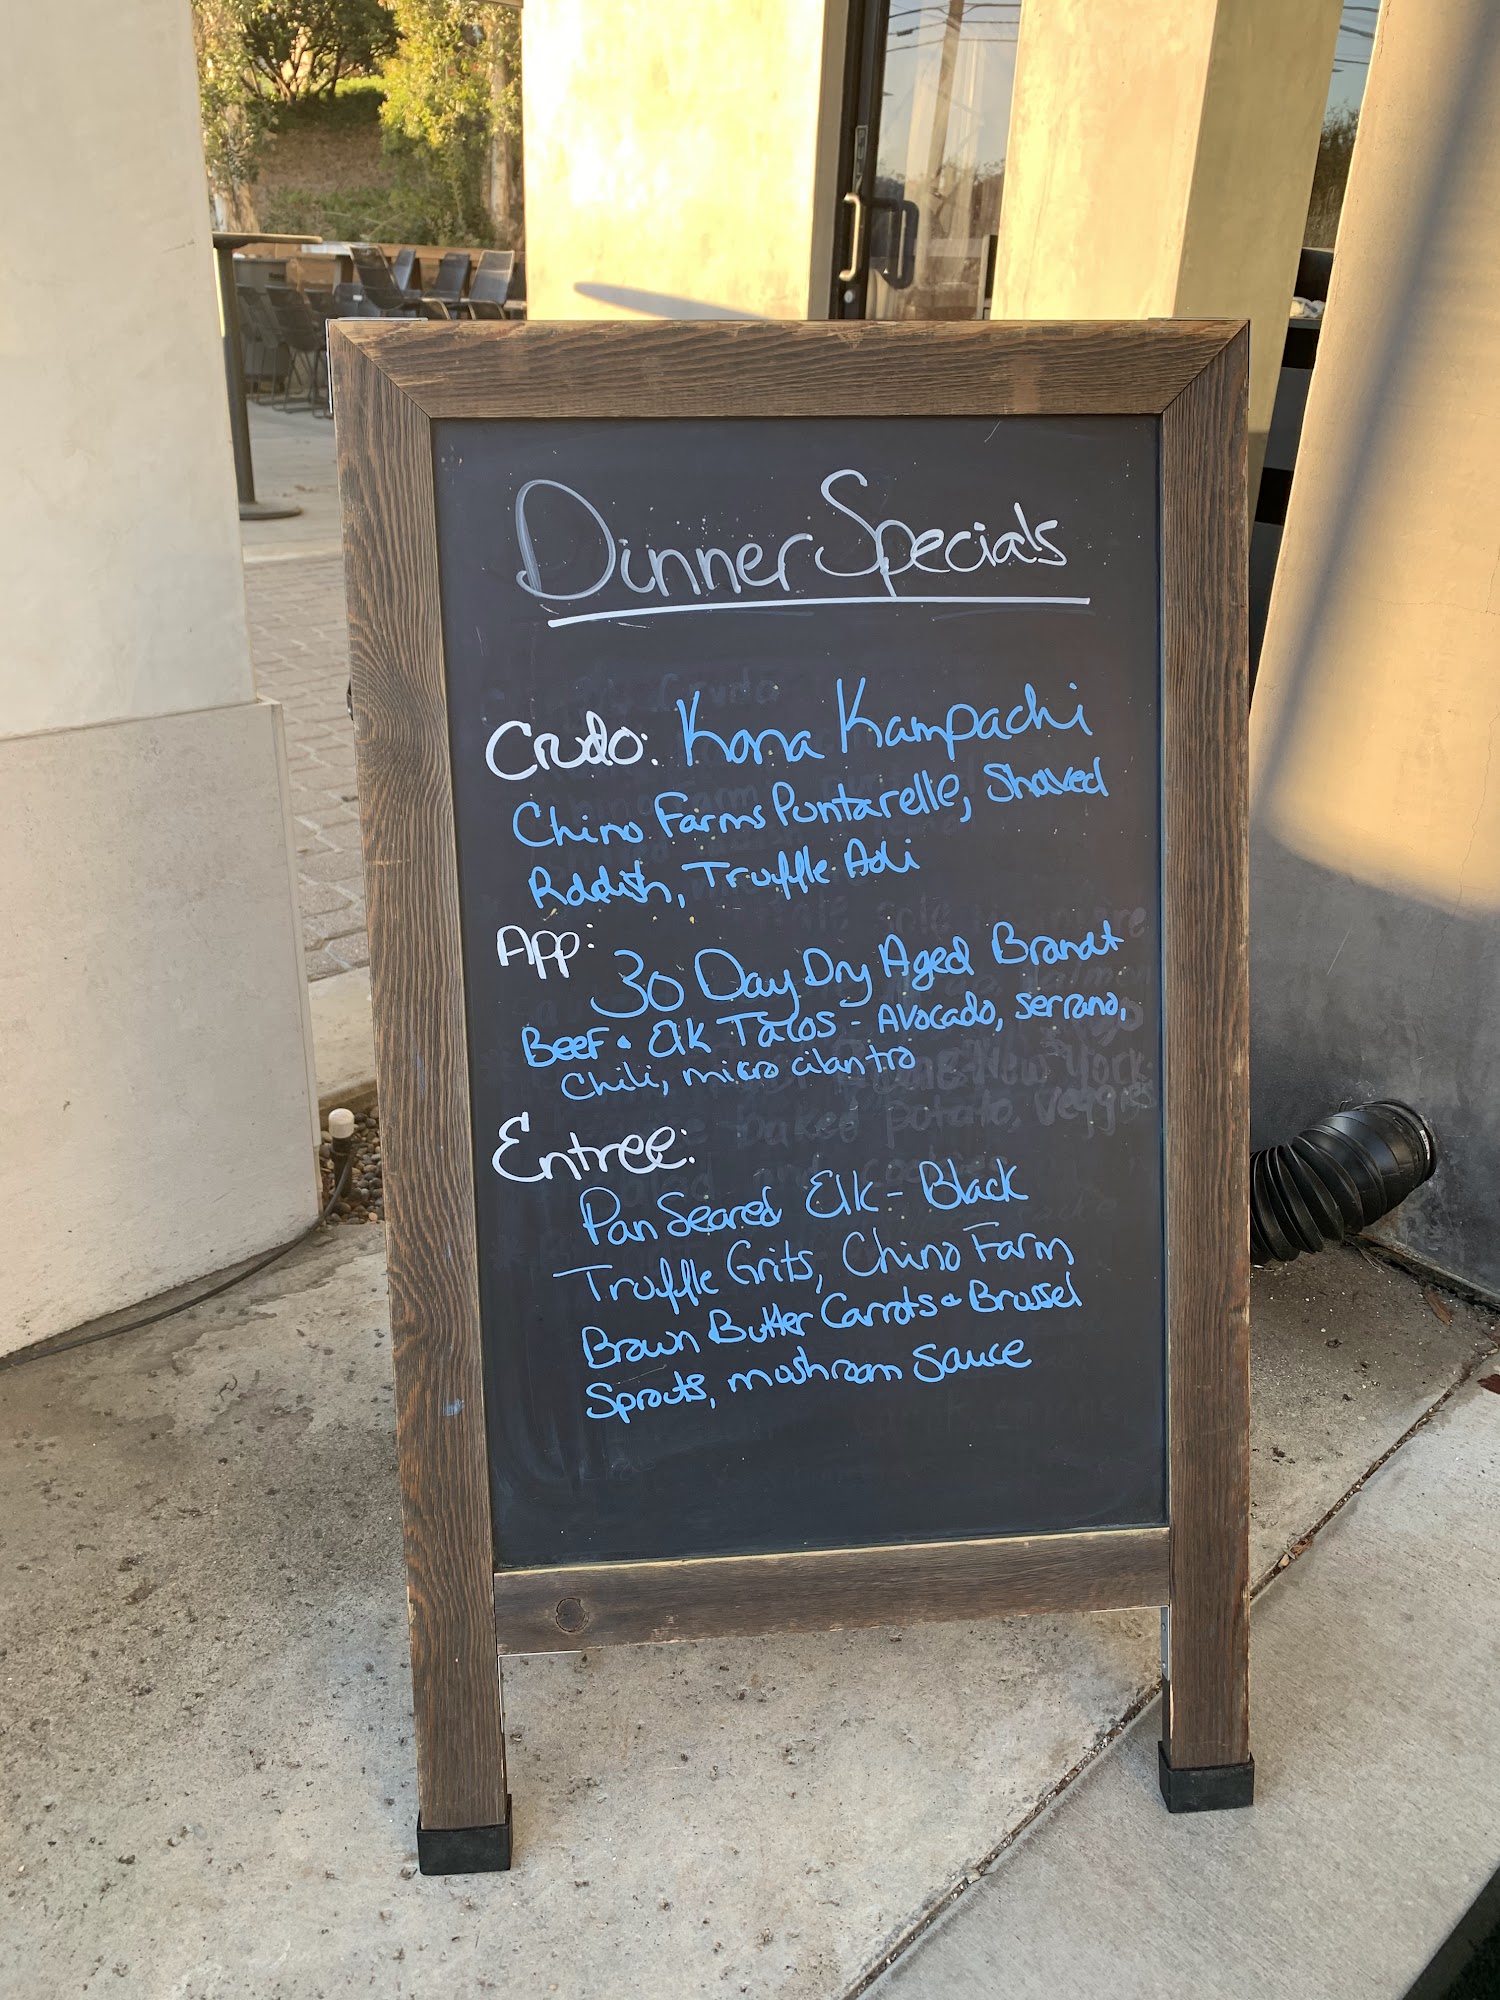 Dinner Specials
Crudo: Kona Kampachi
Chino Farms Puntarelle, Shaved
Raddish, Truffle Aoli
App:
30 Day Dry Aged Brandt
Beef & Elk Tacos - Avocado, serrano,
Chili, micro cilantro
Entree:
Pan Seared Elk - Black
Truffle Grits, Chino Farm
Brown Butter Carrots & Brussel
Sprouts, mushroom Sauce